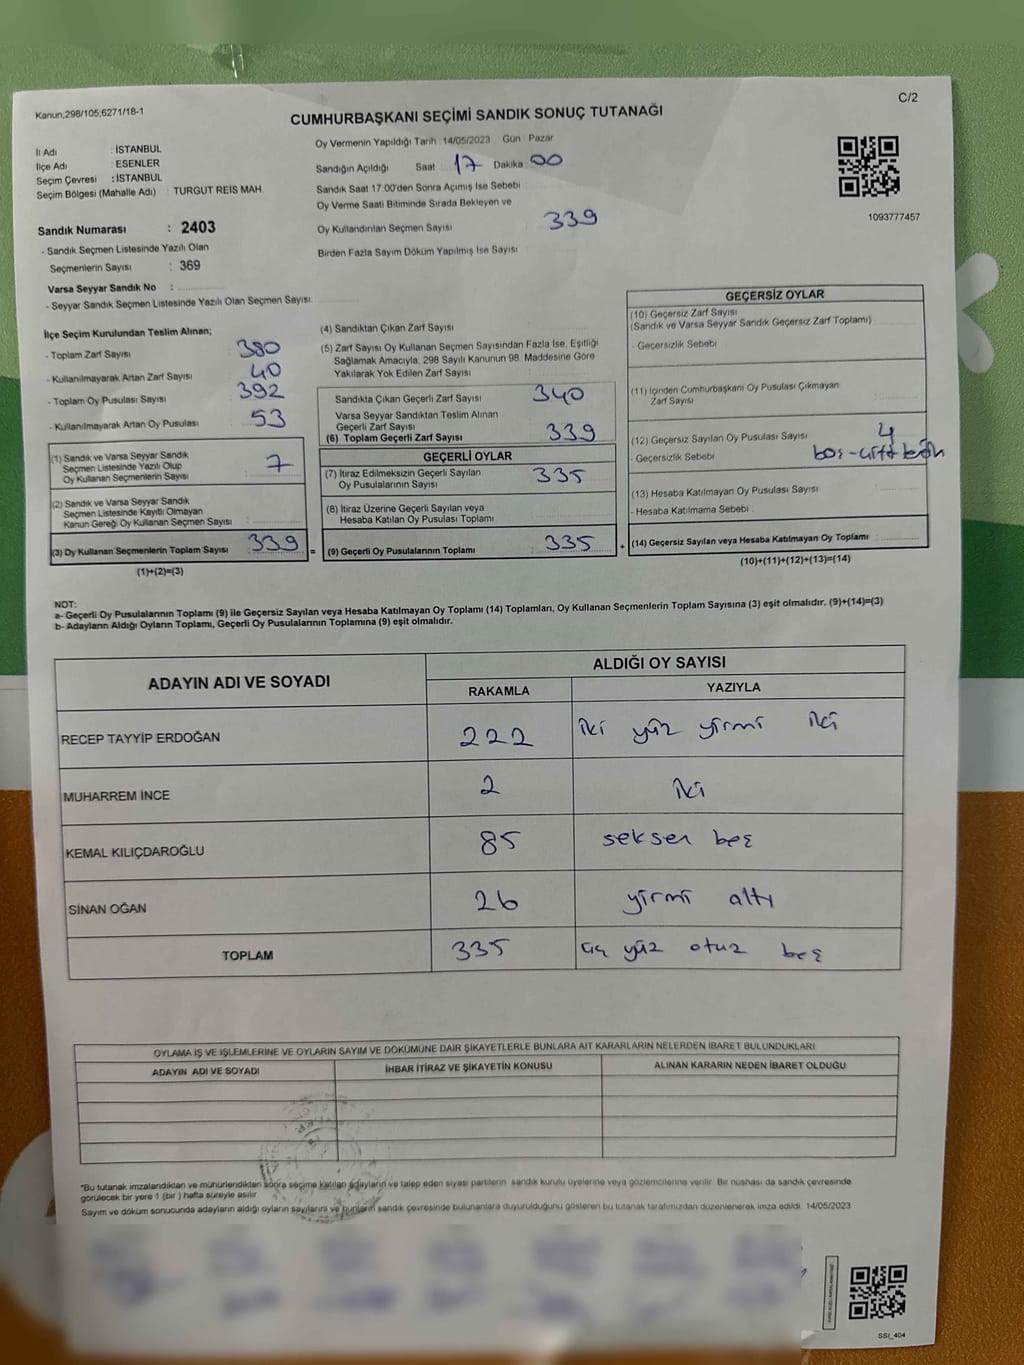 Kanun;298/105;6271/18-1
C/2
CUMHURBAŞKANI SEÇİMİ SANDIK SONUÇ TUTANAĞI
İl Adı : İSTANBUL
İlçe Adı : ESENLER
Seçim Çevresi : İSTANBUL
Seçim Bölgesi (Mahalle Adı) TURGUT REİS MAH.
Sandık Numarası : 2403
- Sandık Seçmen Listesinde Yazılı Olan
Seçmenlerin Sayısı : 369
Varsa Seyyar Sandık No :
- Seyyar Sandık Seçmen Listesinde Yazılı Olan Seçmen Sayısı
Oy Vermenin Yapıldığı Tarih :14/05/2023 Gün : Pazar
Sandığın Açıldığı Saat 17 Dakika 00
Sandık Saat 17.00'den Sonra Açımış İse Sebebi
Oy Verme Saati Bitiminde Sırada Bekleyen ve
Oy Kullandırılan Seçmen Sayısı 339
Birden Fazla Sayım Döküm Yapılmış İse Sayısı
1093777457
İlçe Seçim Kurulundan Teslim Alınan;
- Toplam Zarf Sayısı 380
- Kullanılmayarak Artan Zarf Sayısı 40
- Toplam Oy Pusulası Sayısı 392
- Kullanılmayarak Artan Oy Pusulası 53
(1) Sandık ve Varsa Seyyar Sandık
Seçmen Listesinde Yazılı Olup
Oy Kullanan Seçmenlerin Sayısı 7
(2) Sandık ve Varsa Seyyar Sandık
Seçmen Listesinde Kayıtlı Olmayan
Kanun Gereği Oy Kullanan Seçmen Sayısı
(3) Oy Kullanan Seçmenlerin Toplam Sayısı 339 =
(1)+(2)=(3)
(4) Sandıktan Çıkan Zarf Sayısı
(5) Zarf Sayısı Oy Kullanan Seçmen Sayısından Fazla İse, Eşitliği
Sağlamak Amacıyla, 298 Sayılı Kanunun 98. Maddesine Göre
Yakılarak Yok Edilen Zarf Sayısı
Sandıkta Çıkan Geçerli Zarf Sayısı 340
Varsa Seyyar Sandıktan Teslim Alınan
Geçerli Zarf Sayısı
(6) Toplam Geçerli Zarf Sayısı 339
GEÇERLİ OYLAR
(7) İtiraz Edilmeksizin Geçerli Sayılan
Oy Pusulalarının Sayısı 335
(8) İtiraz Üzerine Geçerli Sayılan veya
Hesaba Katılan Oy Pusulası Toplamı
(9) Geçerli Oy Pusulalarının Toplamı 335 +
GEÇERSİZ OYLAR
(10) Geçersiz Zarf Sayısı
(Sandık ve Varsa Seyyar Sandık Geçersiz Zarf Toplamı)
- Geçersizlik Sebebi
(11) İçinden Cumhurbaşkanı Oy Pusulası Çıkmayan
Zarf Sayısı
(12) Geçersiz Sayılan Oy Pusulası Sayısı 4
- Geçersizlik Sebebi boş-çift
(13) Hesaba Katılmayan Oy Pusulası Sayısı
- Hesaba Katılmama Sebebi
(14) Geçersiz Sayılan veya Hesaba Katılmayan Oy Toplamı
(10)+(11)+(12)+(13)=(14)
NOT:
a- Geçerli Oy Pusulalarının Toplamı (9) ile Geçersiz Sayılan veya Hesaba Katılmayan Oy Toplamı (14) Toplamları, Oy Kullanan Seçmenlerin Toplam Sayısına (3) eşit olmalıdır. (9)+(14)=(3)
b- Adayların Aldığı Oyların Toplamı, Geçerli Oy Pusulalarının Toplamına (9) eşit olmalıdır.
ADAYIN ADI VE SOYADI
ALDIĞI OY SAYISI
RAKAMLA YAZIYLA
RECEP TAYYİP ERDOĞAN 222 iki yüz yirmi iki
MUHARREM İNCE 2 iki
KEMAL KILIÇDAROĞLU 85 seksen beş
SİNAN OĞAN 26 yirmi altı
TOPLAM 335 üç yüz otuz beş
OYLAMA İŞ VE İŞLEMLERİNE VE OYLARIN SAYIM VE DÖKÜMÜNE DAİR ŞİKAYETLERLE BUNLARA AİT KARARLARIN NELERDEN İBARET BULUNDUKLARI
ADAYIN ADI VE SOYADI İHBAR İTİRAZ VE ŞİKAYETİN KONUSU ALINAN KARARIN NEDEN İBARET OLDUĞU
*Bu tutanak imzalandıktan ve mühürlendikten sonra seçime katılan adayların ve talep eden siyasi partilerin sandık kurulu üyelerine veya gözlemcilerine verilir. Bir nüshası da sandık çevresinde
görülecek bir yere 1 (bir ) hafta süreyle asılır
Sayım ve döküm sonucunda adayların aldığı oyların sayılarını ve bunların sandık çevresinde bulunanlara duyurulduğunu gösteren bu tutanak tarafımızdan düzenlenerek imza edildi. 14/05/2023
SSI_404